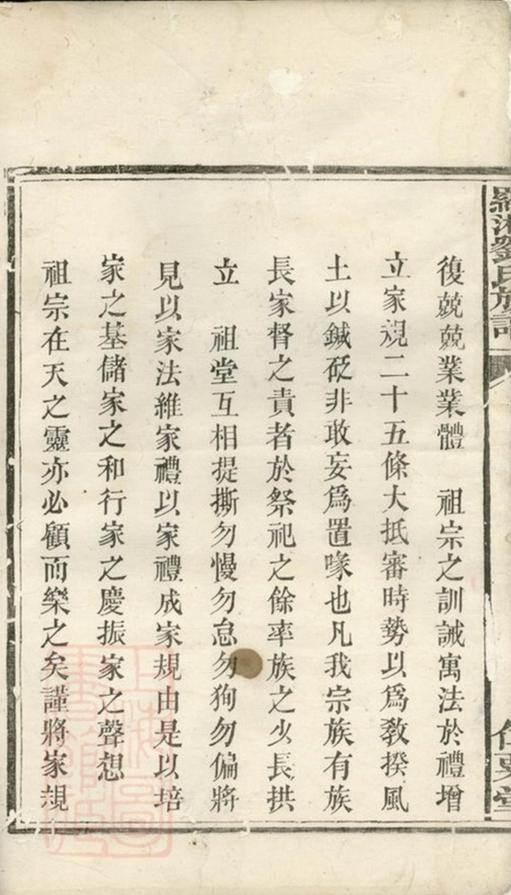 復兢兢業業體　祖宗之訓誡寓法於禮增
立家規二十五條大抵審時勢以爲敎揆風
土以鍼砭非敢妄爲置喙也凡我宗族有族
長家督之責者於祭祀之餘率族之少長拱
立　祖堂互相提撕勿慢勿怠勿狥勿偏將
見以家法維家禮以家禮成家規由是以培
家之基儲家之和行家之慶振家之聲想
祖宗在天之靈亦必顧而樂之矣謹將家規
劉氏族譜